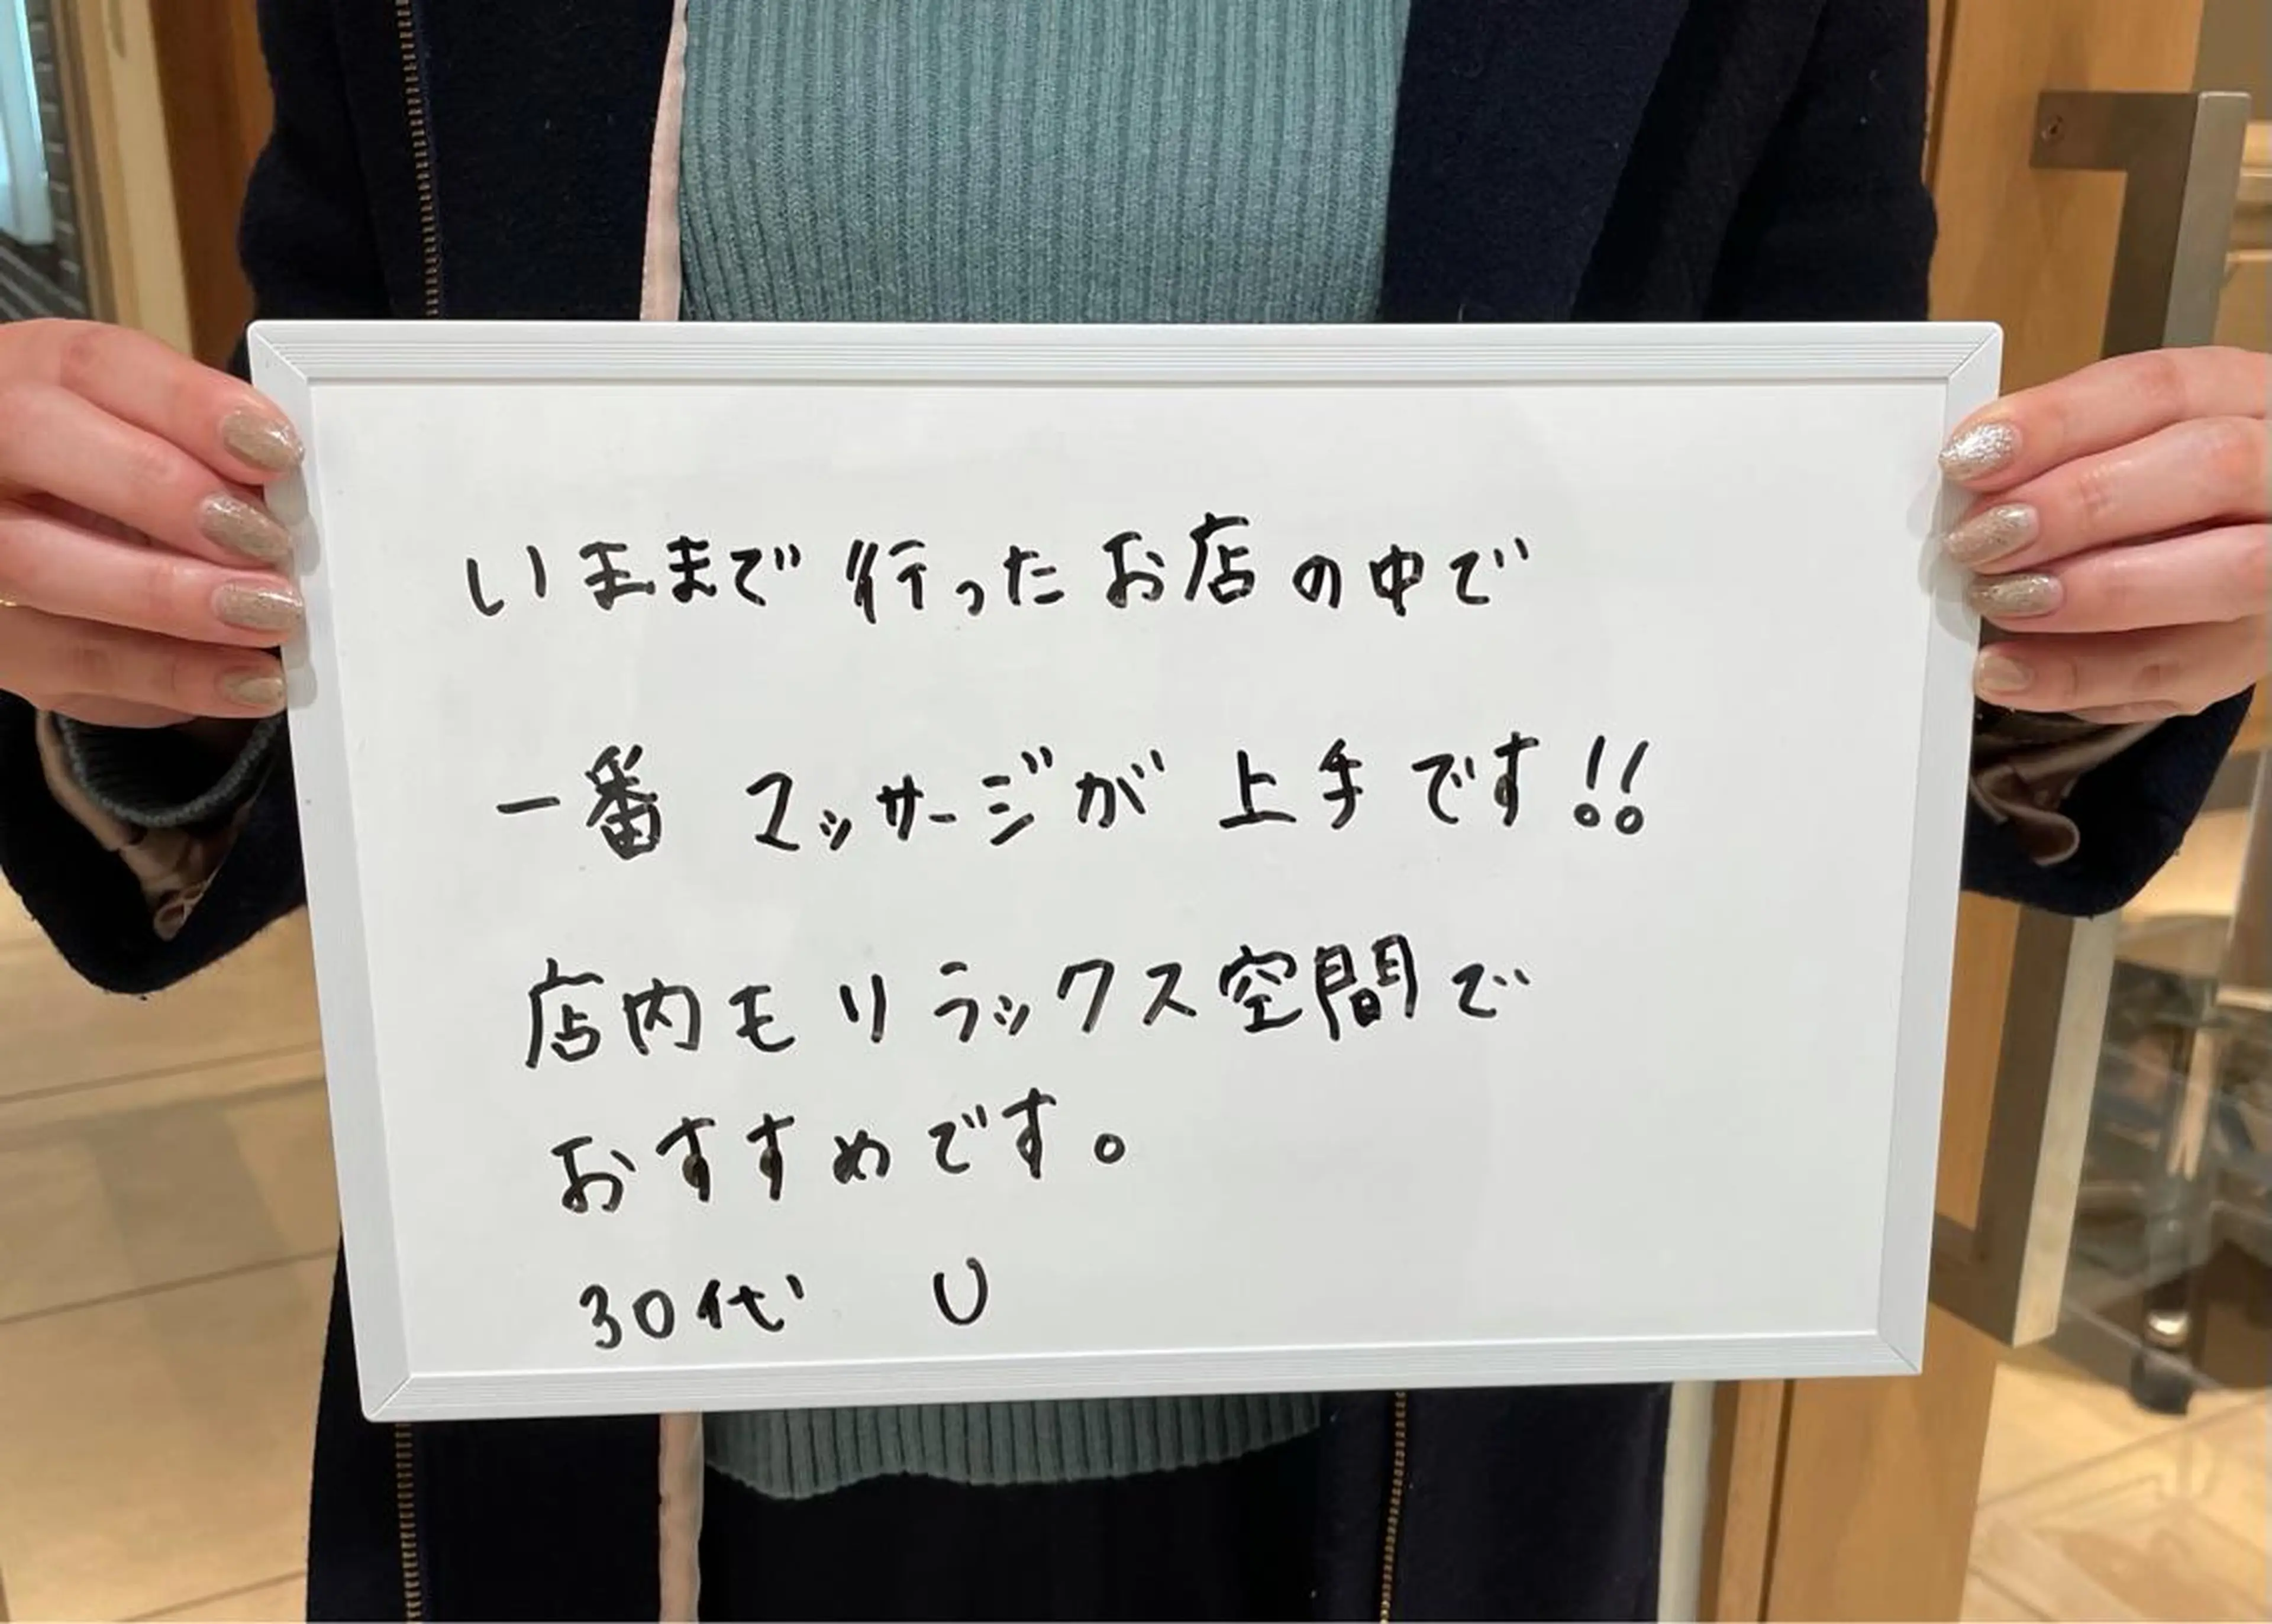 いままで行ったお店の中で
一番 マッサージが上手です!!
店内もリラックス空間で
おすすめです。
30代 U